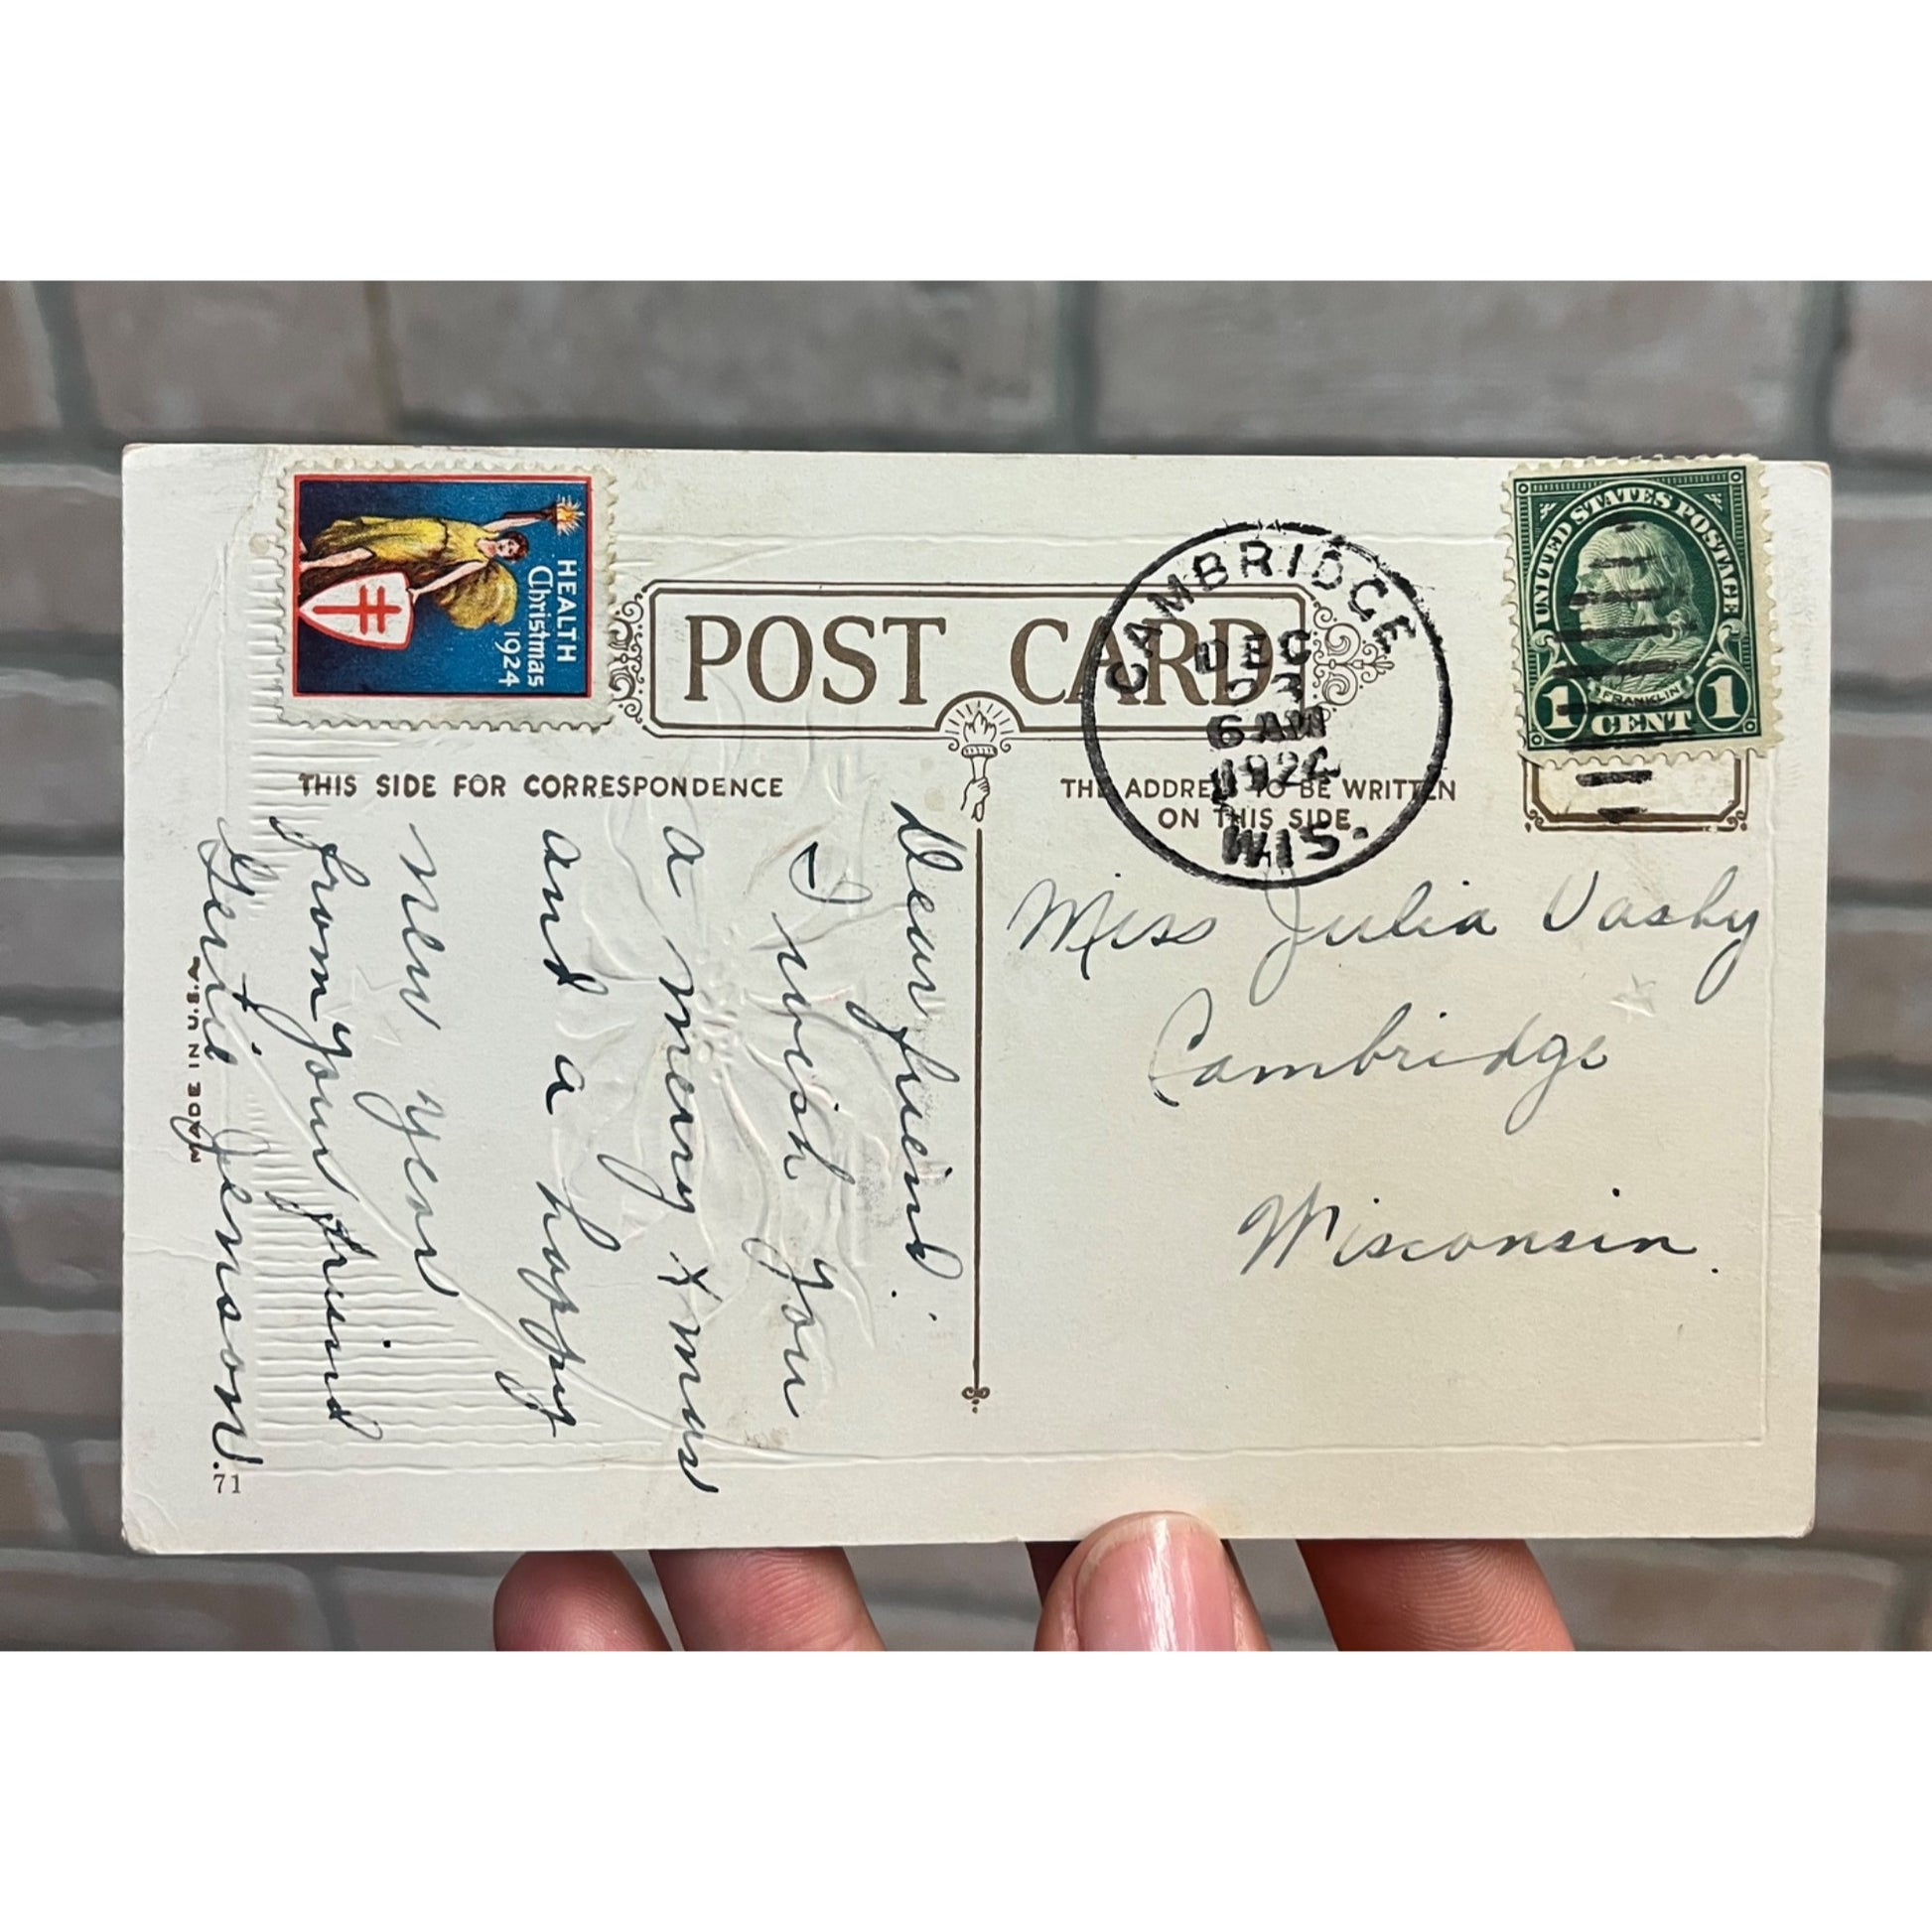 HEALTH
Christmas
1924
POST CARD
CAMBRIDGE
DEC
23
6 AM
1924
WIS.
UNITED STATES POSTAGE
FRANKLIN
1 CENT 1
THIS SIDE FOR CORRESPONDENCE
THE ADDRESS TO BE WRITTEN
ON THIS SIDE
Dear friend.
I wish you
a merry Xmas
and a happy
New year
from your friend
Gertie Jemson.
Miss Julia Vasby
Cambridge
Wisconsin.
MADE IN U.S.A.
71